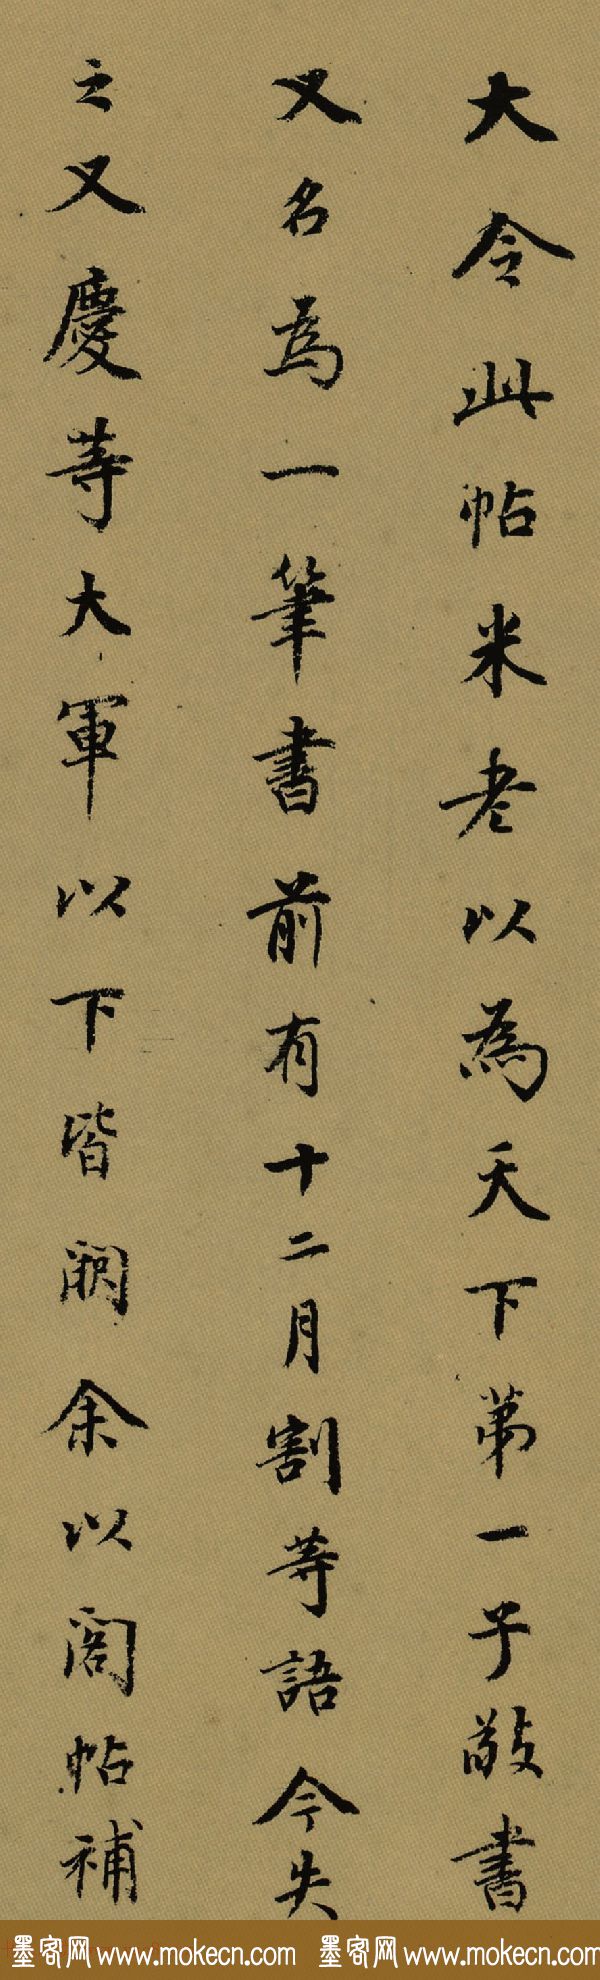 大令此帖米老以為天下第一子敬書
又名為一筆書前有十二月割等語今失
之又慶等大軍以下皆闕余以閣帖補
墨客网 www.mokecn.com 墨客网 www.mokecn.com